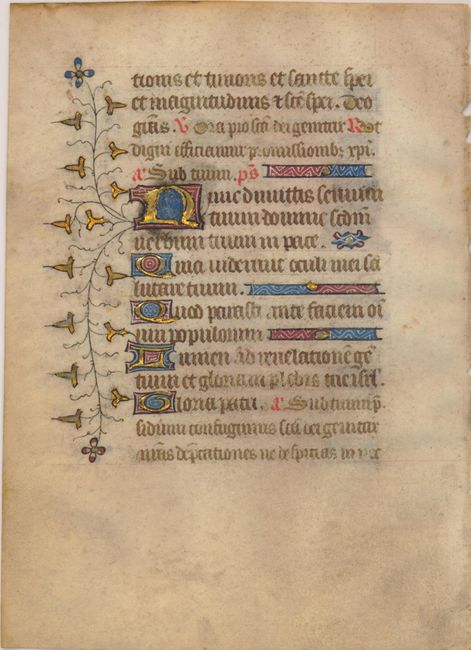 tionis et timoris et sancte spei
et magnitudinis et sce spei. Deo
gras. V Ora pro sca dei genitrix R Vt
digni efficiamur promissionib; xpi.
a Sub tuum. ps
Nunc dimittis seruum
tuum domine scdm
uerbum tuum in pace.
Quia uiderunt oculi mei sa
lutare tuum.
Quod parasti ante faciem oi
um populorum
Lumen ad reuelatione ge
tium et gloriam plebis tue isrl.
Gloria patri. a Sub tuum p
sidium confugimus sca dei genitrix
nras deprcationes ne despicias in